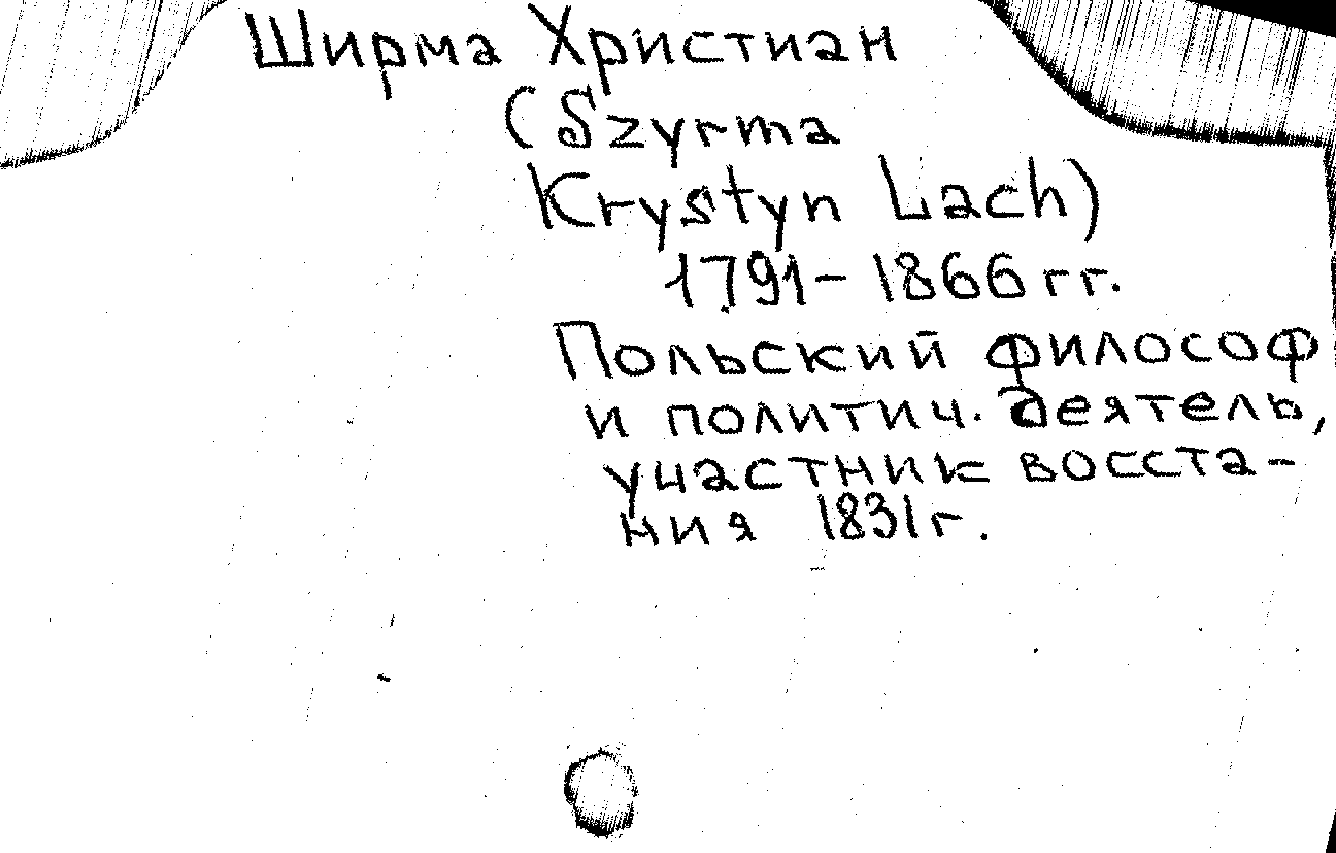 Ширма Христиан
(Szyrma
Krystyn Lach)
1791-1866 гг.
Польский философ
и политич. деятель,
участник восста-
ния 1831 г.